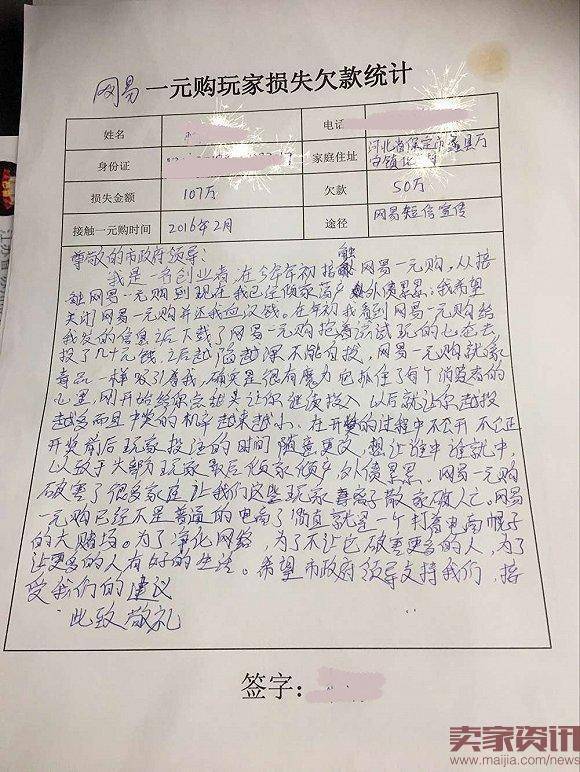 网易一元购玩家损失欠款统计
姓名 电话
身份证 家庭住址 河北省保定市蠡县万
镇
损失金额 107万 欠款 50万
接触一元购时间 2016年2月 途径 网易短信宣传
尊敬的市政府领导:
我是一名创业者,在今年年初接触网易一元购,从接
触网易一元购到现在我已经倾家荡产外债累累;我希望
关闭网易一元购并还我血汗钱。在年初我看到网易一元购给
我发的信息之后下载了网易一元购抱着尝试玩的心态去
投了几十元钱,之后越陷越深不能自拔,网易一元购就像
毒品一样吸引着我,确实是很有魔力它抓住了每个消费者的
心里,刚开始给你点甜头让你继续投入 以后就让你越投
越多而且中奖的机率越来越小、在开奖的过程中不公开 不公正
开奖前后玩家投注的时间 随意更改,想让谁中谁就中,
以致于大部分玩家最后倾家荡产 外债累累、网易一元购
破害了很多家庭 让我们这些玩家妻离子散 家破人亡。网易
一元购已经不是普通的电商了 简直就是一个打着电商帽子
的大赌场。为了净化网络,为了不让它破害更多的人,为了
让更多的人有好的生活。希望市政府领导支持我们,接
受我们的建议
此致敬礼
签字:
卖家资讯
www.maijia.com/news